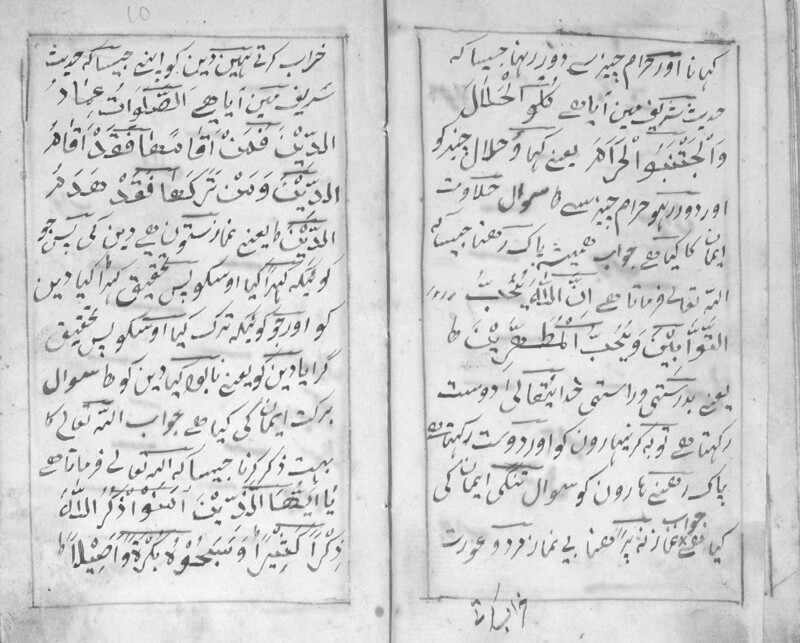 کہانا اور حرام چیز سے دور رہنا جیسا کہ
حدیث شریف مین آیا ہے کُلُو الْحَلَالَ
وَالْجْتَنِبُو الْحَرَامَ یعنے کہاؤ حلال چیز کو
اور دور رہو حرام چیز سے ط سوال حلاوت
ایمان کا کیا ہے جواب ہمیشہ پاک رہنا جیسا کہ
اللہ تعالے فرماتا ہے اِنَّ اللّٰهَ یُحِبُّ
التَّوَّابِیْنَ وَیُحِبُّ الْمُتَطَهِّرِیْنَ ط
یعنے بدرستی و راستی خدایتعالیٰ دوست
رکہتا ہے توبہ کرنیہارون کو اور دوست رکہتا ہے
پاک رہنے ہارون کو سوال تنگی ایمان کی
کیا ہے جواب نماز نہ پڑہنا بی نماز مرد و عورت
خراب کرتے
خراب کرتے ہین دین کو اپنے جیسا کہ حدیث
شریف مین آیا ہے اَلصَّلوَاتُ عِمَادُ
الدِّیْنَ فَمَنْ اَقَامَهَا فَقَدْ اَقَامَ
الدِّیْنَ وَمَنْ تَرَکَهَا فَقَدْ هَدَمَ
الدِّیْنَ ط یعنے نماز ستون ہے دین کی پس جو
کوئیکہ کہڑا کیا اوسکو پس تحقیق کہڑا کیا دین
کو اور جو کوئیکہ ترک کیا اوسکو پس تحقیق
گرایا دین کو یعنے نابود کیا دین کو ط سوال
برکت ایمان کی کیا ہے جواب اللہ تعالے کا
بہت ذکر کرنا جیسا کہ اللہ تعالے فرماتا ہے
یَا اَیُّهَا الَّذِیْنَ آمَنُوْا ذْکُرُ اللّٰهَ
ذِکْرًا کَثِیْرًا وَّسَبِّحُوْهُ بُکْرَةً وَّاَصِیْلًا ط